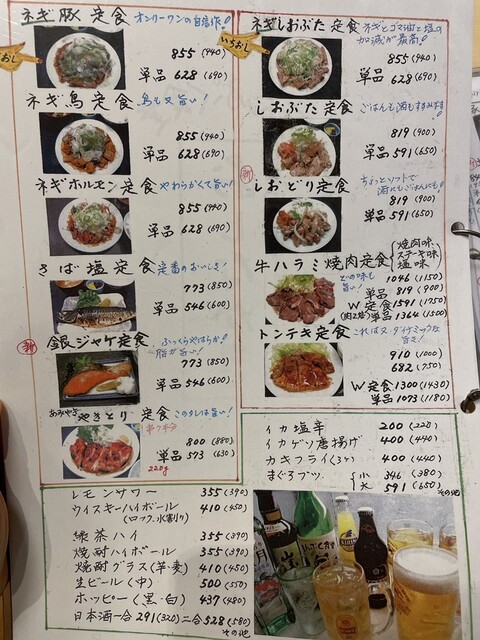 ネギ豚定食 オンリーワンの自信作!
いちおし
855(940)
単品 628(690)
ネギ鳥定食 鳥も又旨い!
855(940)
単品 628(690)
ネギホルモン定食 やわらかくて旨い!
855(940)
単品 628(690)
さば塩定食 定番のおいしさ!
773(850)
単品 546(600)
新
銀ジャケ定食 ふっくらやわらか!
脂が旨い!
773(850)
単品 546(600)
あみやき
やきとり定食 このタレは旨い!
800(880)
単品 573(630)
220g
ネギしおぶた定食 ネギとゴマ油と塩の
加減が最高!
いちおし
855(940)
単品 628(690)
しおぶた定食 ごはんも酒もすすみます!
819(900)
単品 591(650)
新
しおどり定食 ちょっとソフトで
酒にもごはんにも!
819(900)
単品 591(650)
牛ハラミ焼肉定食 焼肉味、
ステーキ味
塩味
どの味も
旨い!
1046(1150)
単品 819(900)
W定食 1591(1750)
(肉2倍) 単品 1364(1500)
トンテキ定食 これは又ダイナミックな
旨さ!
910(1000)
682(750)
W定食 1300(1430)
単品 1073(1180)
イカ塩辛 200(220)
イカゲソ唐揚げ 400(440)
カキフライ(3ヶ) 400(440)
まぐろブツ 小 346(380)
大 591(650)
その他
レモンサワー 355(390)
ウイスキーハイボール 410(450)
(ロック、水割り)
緑茶ハイ 355(390)
焼酎ハイボール 355(390)
焼酎グラス(芋・麦) 410(450)
生ビール(中) 500(550)
ホッピー(黒・白) 437(480)
日本酒一合 291(320) 二合 528(580)
その他